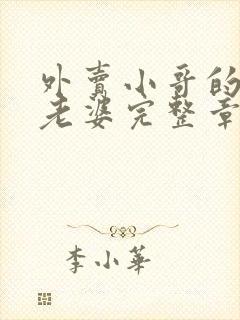 外賣小哥的
老婆完整章
李小華